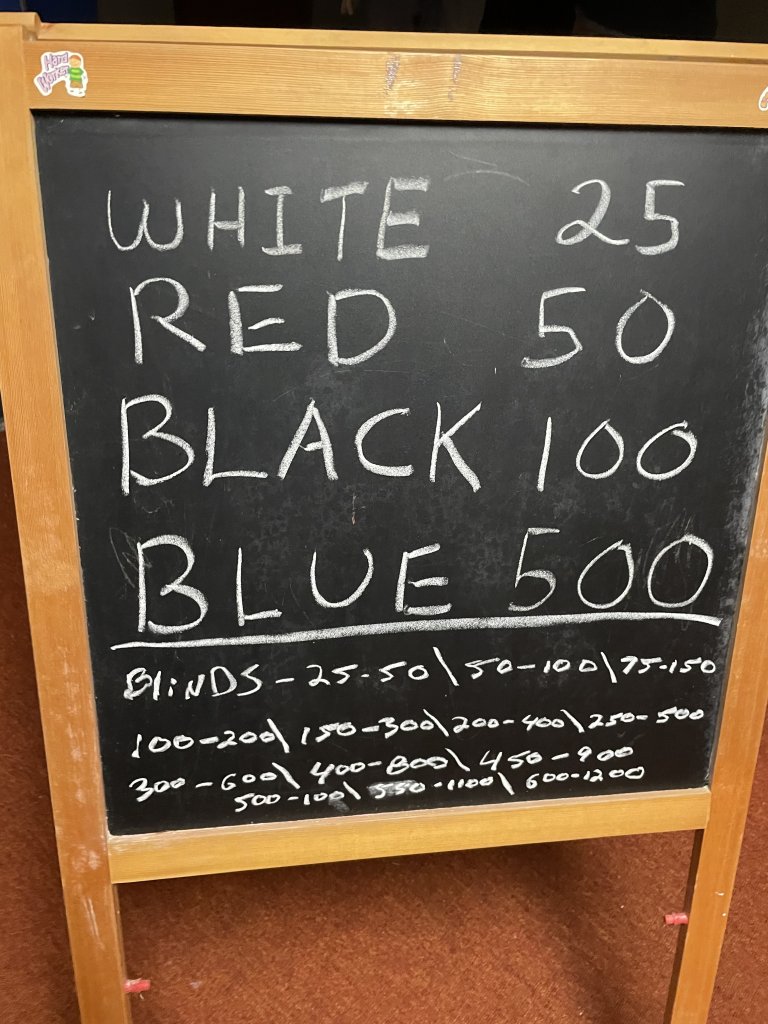 Hard
Worker
WHITE 25
RED 50
BLACK 100
BLUE 500
BLiNDS - 25-50\50-100\75-150
100-200\150-300\200-400\250-500
300-600\400-800\450-900
500-100\550-1100\600-1200